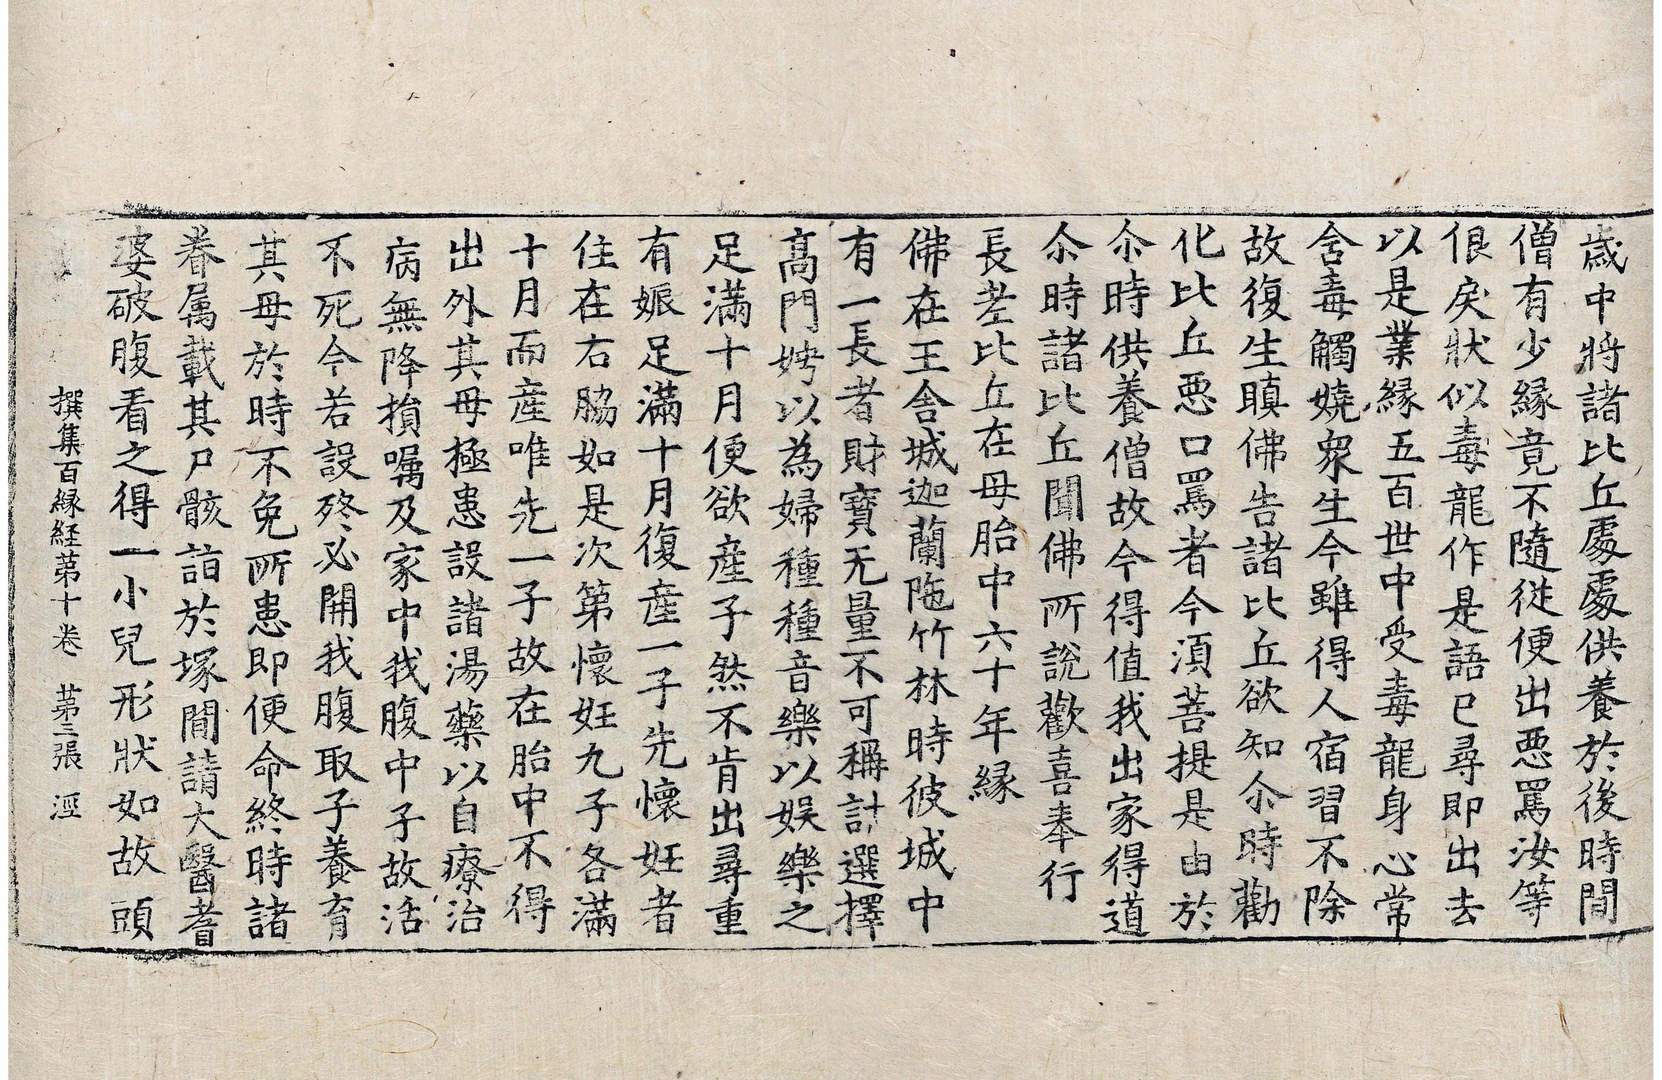 歲中將諸比丘處處供養於後時間
僧有少縁竟不隨從便出惡罵汝等
佷戾狀似毒龍作是語已尋即出去
以是業縁五百世中受毒龍身心常
含毒觸嬈衆生今雖得人宿習不除
故復生瞋佛告諸比丘欲知尒時勸
化比丘惡口罵者今須菩提是由於
尒時供養僧故今得值我出家得道
尒時諸比丘聞佛所說歡喜奉行
長老比丘在母胎中六十年縁
佛在王舍城迦蘭陁竹林時彼城中
有一長者財寶无量不可稱計選擇
髙門娉以為婦種種音樂以娱樂之
足滿十月便欲産子然不肯出尋重
有娠足滿十月復産一子先懷妊者
住在右脇如是次第懷妊九子各滿
十月而産唯先一子故在胎中不得
出外其母極患設諸湯藥以自療治
病無降損囑及家中我腹中子故活
不死今若設終必開我腹取子養育
其母於時不免所患即便命終時諸
眷属載其尸骸詣於塚間請大醫耆
婆破腹看之得一小兒形狀如故頭
撰集百縁経第十卷 第三張 涇